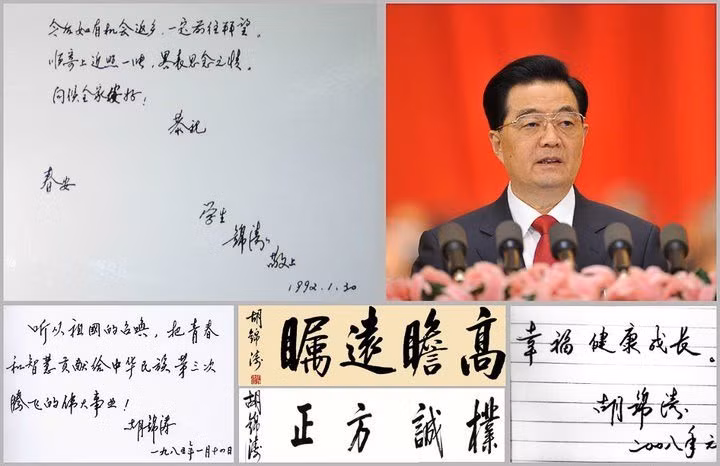 今后如有机会返乡，一定前往拜望。
顺寄上近照一帧，表思念之情。
问候全家安好！
恭祝
春安
学生
锦涛
敬上
1992.1.30
听从祖国的召唤，把青春
和智慧贡献给中华民族第三次
腾飞的伟大事业！
胡锦涛
一九八五年一月十四日
高瞻遠瞩
胡錦濤
樸誠方正
胡錦濤
幸福健康成长。
胡锦涛
二〇〇八年元